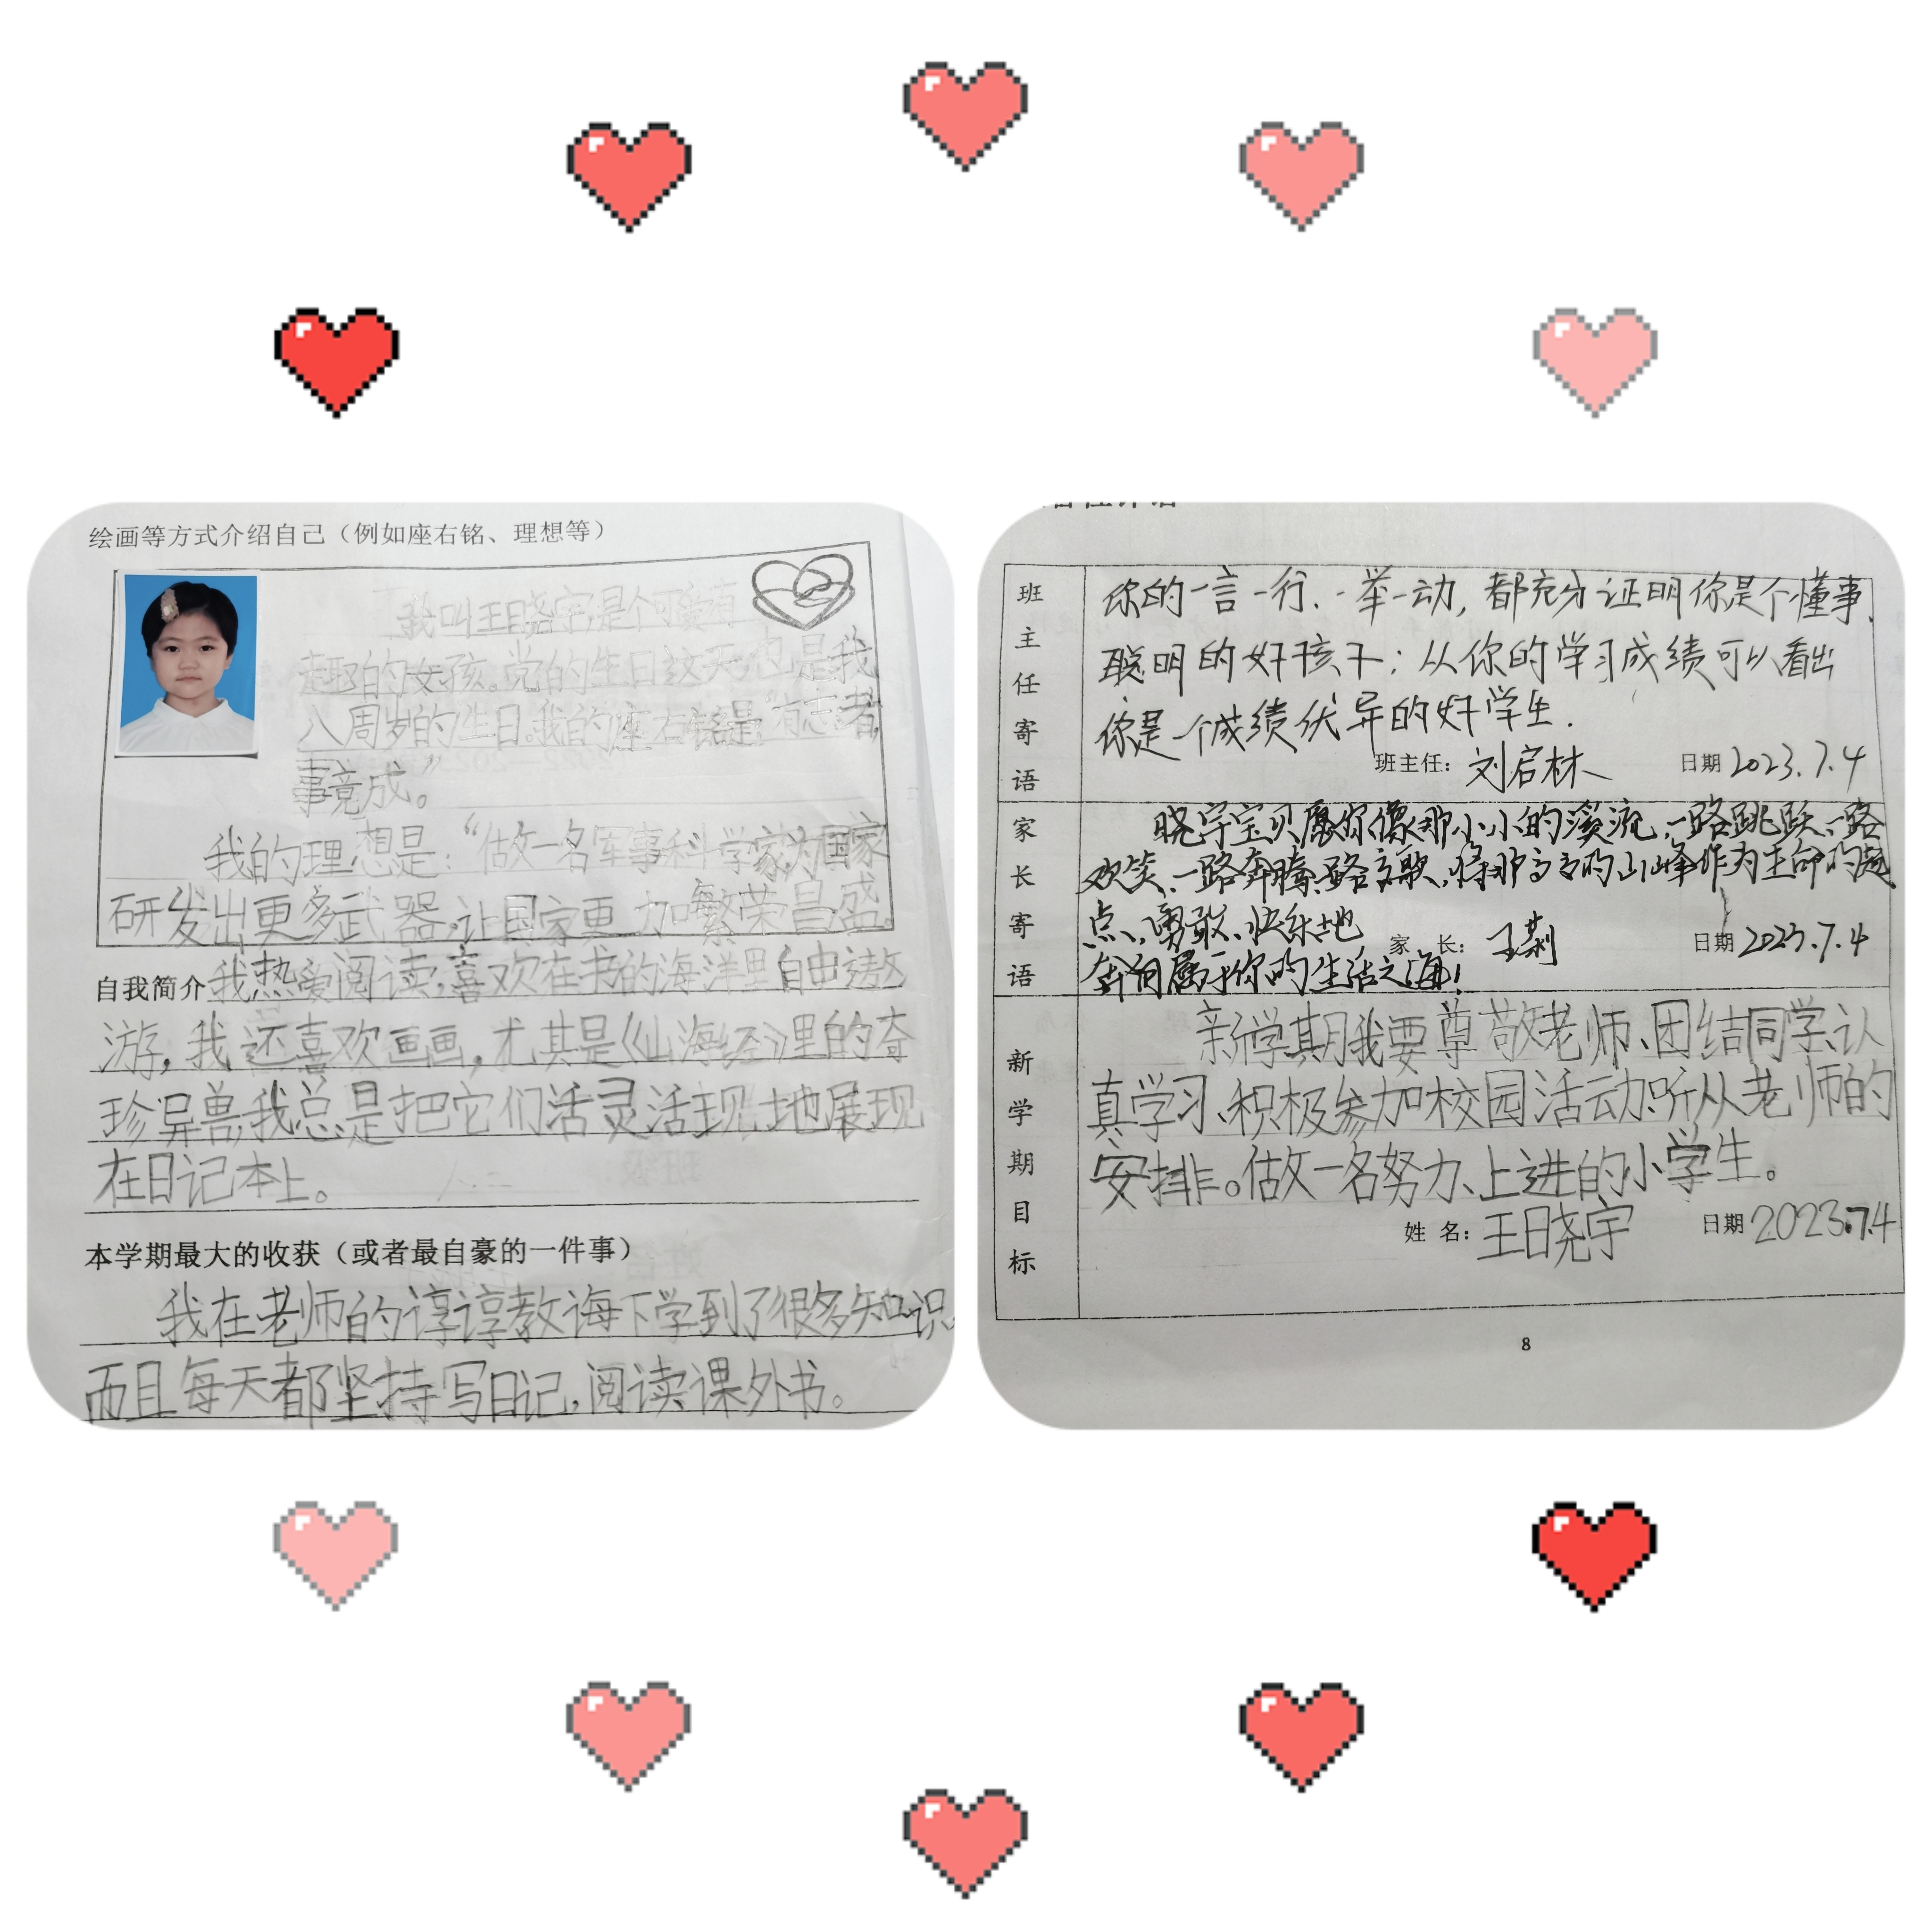 绘画等方式介绍自己（例如座右铭、理想等）
我叫王晓宇是个可爱有
趣的女孩。党的生日这天也是我
八周岁的生日。我的座右铭是“有志者,
事竟成”。
我的理想是：“做一名军事科学家,为国家
研发出更多武器,让国家更加繁荣昌盛。
自我简介 我热爱阅读,喜欢在书的海洋里自由遨
游,我还喜欢画画,尤其是《山海经》里的夺
珍异兽,我总是把它们活灵活现地展现
在日记本上。
本学期最大的收获（或者最自豪的一件事）
我在老师的谆谆教诲下学到了很多知识,
而且每天都坚持写日记,阅读课外书。
班主任寄语
你的一言一行、一举一动,都充分证明你是个懂事、
聪明的好孩子；从你的学习成绩可以看出
你是一个成绩优异的好学生.
班主任：刘启林 日期 2023.7.4
家长寄语
晓宇宝贝愿你像那小小的溪流,一路跳跃、一路
欢笑、一路奔腾、一路高歌,将那高高的山峰作为生命的起
点、勇敢、快乐地
家 长： 日期 2023.7.4
奔向属于你的生活之海！
新学期目标
新学期我要尊敬老师、团结同学、认
真学习、积极参加校园活动、听从老师的
安排。做一名努力、上进的小学生。
姓 名：王晓宇 日期 2023.7.4
8